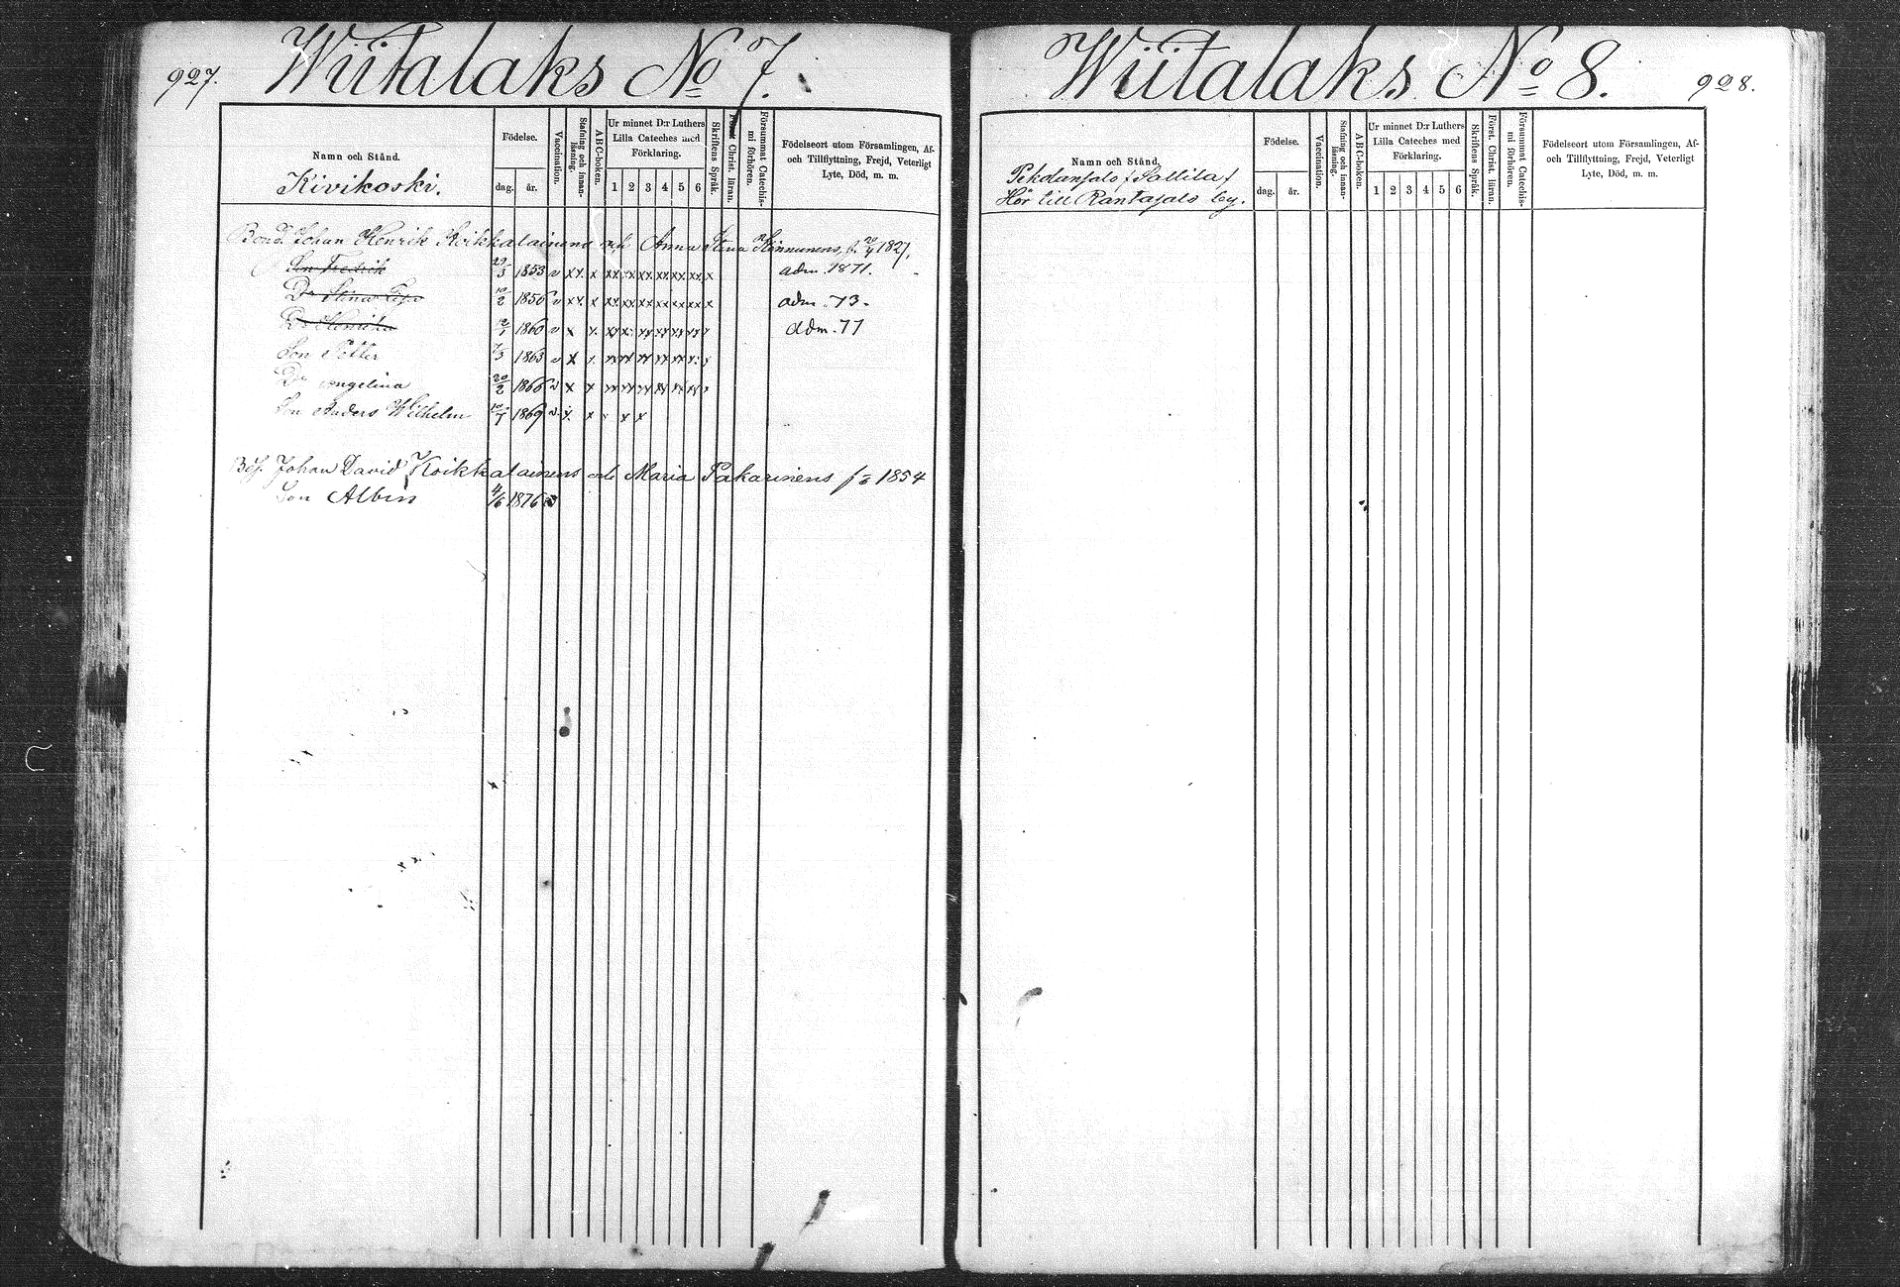 927.
Wiitalaks No 7.
Namn och Stånd.
Kivikoski.
Födelse.
dag. år.
Vaccination.
Stafning och innanläsning.
ABC-boken.
Ur minnet D:r Luthers
Lilla Cateches med
Förklaring.
1 2 3 4 5 6
Skriftens Språk.
Först. Christ. läran.
Försummat Catechismi förhören.
Födelseort utom Församlingen, Af-
och Tillflyttning, Frejd, Veterligt
Lyte, Död, m. m.
Bond. Johan Henrik Koikkalainens och Anna Stina Kinnunens, f. 20/4 1827.
Son Fredrik 29/3 1853 v xx x xx xx xx xx xx xx x adm. 1871.
Dr Stina 10/2 1856 v xx x xx xx xx xx xx xx x adm. 73.
Dr Henrika 1860 v x x xx xx xx xx xx xx adm. 77
Son Petter 7/3 1863 v x x xx xx xx xx xx
Dr Angelina 20/2 1866 v x x xx xx xx xx xx xx
Son Anders Wilhelm 10/7 1869 v x x x x
Johan David Koikkalainens och Maria Pakarinens f. 1854
Son Albin 4/6 1876 v
Wiitalaks No 8.
928.
Namn och Stånd.
Hör till Rantasalo by.
Födelse.
dag. år.
Vaccination.
Stafning och innanläsning.
ABC-boken.
Ur minnet D:r Luthers
Lilla Cateches med
Förklaring.
1 2 3 4 5 6
Skriftens Språk.
Först. Christ. läran.
Försummat Catechismi förhören.
Födelseort utom Församlingen, Af-
och Tillflyttning, Frejd, Veterligt
Lyte, Död, m. m.